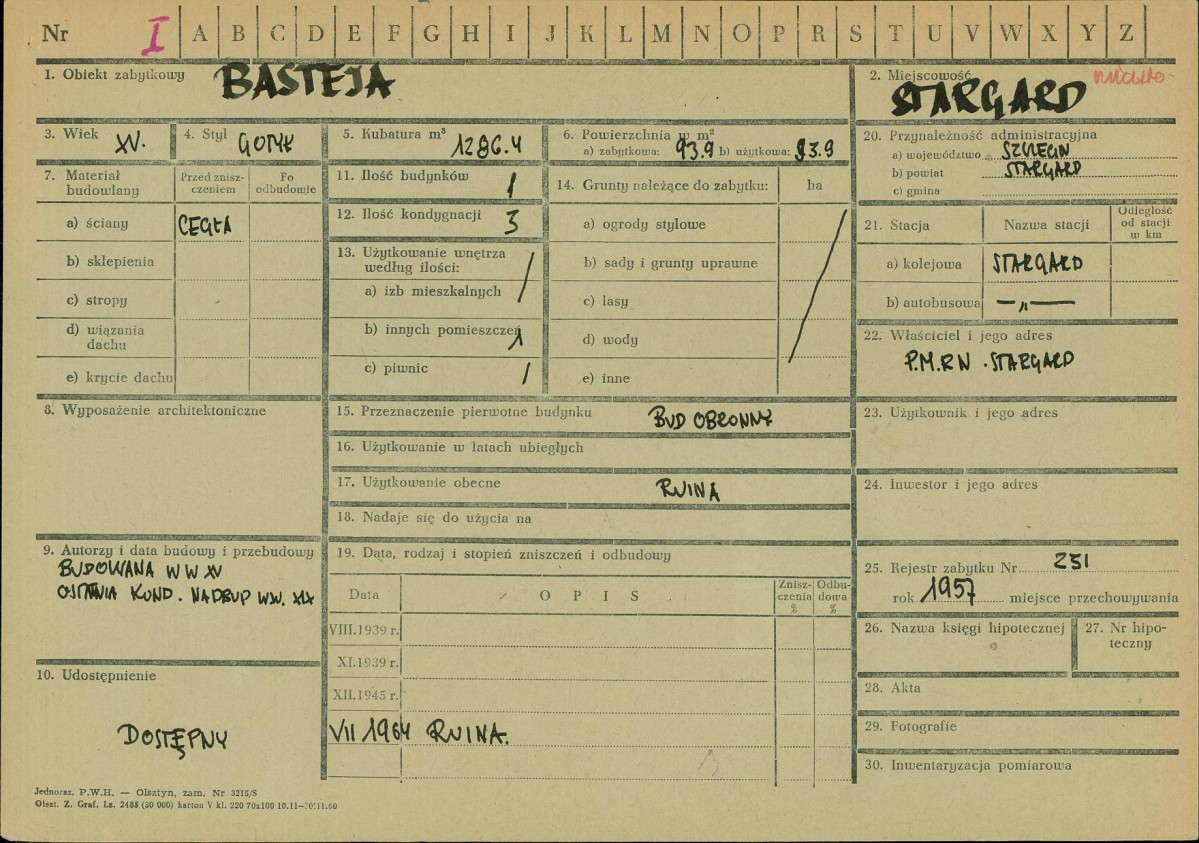 Nr I A B C D E F G H I J K L M N O P R S T U V W X Y Z
1. Obiekt zabytkowy BASTEJA
2. Miejscowość STARGARD miasto
3. Wiek XV.
4. Styl GOTYK
5. Kubatura m³ 1286.4
6. Powierzchnia w m²
a) zabytkowa: 93.9 b) użytkowa: 93.9
20. Przynależność administracyjna
a) województwo SZCZECIN
b) powiat STARGARD
c) gmina
7. Materiał budowlany
Przed znisz-
czeniem
Po
odbudowie
a) ściany CEGŁA
b) sklepienia
c) stropy
d) wiązania
dachu
e) krycie dachu
11. Ilość budynków 1
12. Ilość kondygnacji 3
13. Użytkowanie wnętrza
według ilości:
a) izb mieszkalnych /
b) innych pomieszczeń 1
c) piwnic /
14. Grunty należące do zabytku: ha
a) ogrody stylowe
b) sady i grunty uprawne
c) lasy
d) wody
e) inne
21. Stacja Nazwa stacji
Odległość
od stacji
w km
a) kolejowa STARGARD
b) autobusowa — „ —
22. Właściciel i jego adres
P.M.R N . STARGARD
8. Wyposażenie architektoniczne
15. Przeznaczenie pierwotne budynku BUD OBRONNY
16. Użytkowanie w latach ubiegłych
17. Użytkowanie obecne RUINA
18. Nadaje się do użycia na
23. Użytkownik i jego adres
24. Inwestor i jego adres
9. Autorzy i data budowy i przebudowy
BUDOWANA W W XV
OSTATNIA KOND. NADBUD W W. XIX
19. Data, rodzaj i stopień zniszczeń i odbudowy
Data OPIS
Znisz-
czenia
%
Odbu-
dowa
%
VIII.1939 r.
XI.1939 r.
XII.1945 r.
VII 1964 RUINA.
25. Rejestr zabytku Nr 231
rok 1957 miejsce przechowywania
26. Nazwa księgi hipotecznej
27. Nr hipo-
teczny
10. Udostępnienie
DOSTĘPNY
28. Akta
29. Fotografie
30. Inwentaryzacja pomiarowa
Jednoraz. P.W.H. — Olsztyn, zam. Nr 3215/S
Olszt. Z. Graf. Lz. 2485 (30 000) karton V kl. 220 70x100 10.11—30.11.60